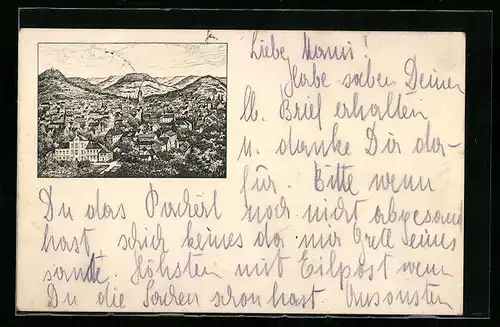 Liebe Mami!
Habe soben Deinen
lb. Brief erhalten
u. danke Dir da-
für. Bitte wenn
Du das Packerl noch nicht abgesand
hast, schick keines da mir Gretl seines
sandte. Höhsten mit Eilpost wenn
Du die Sachen schon hast. Ansonsten